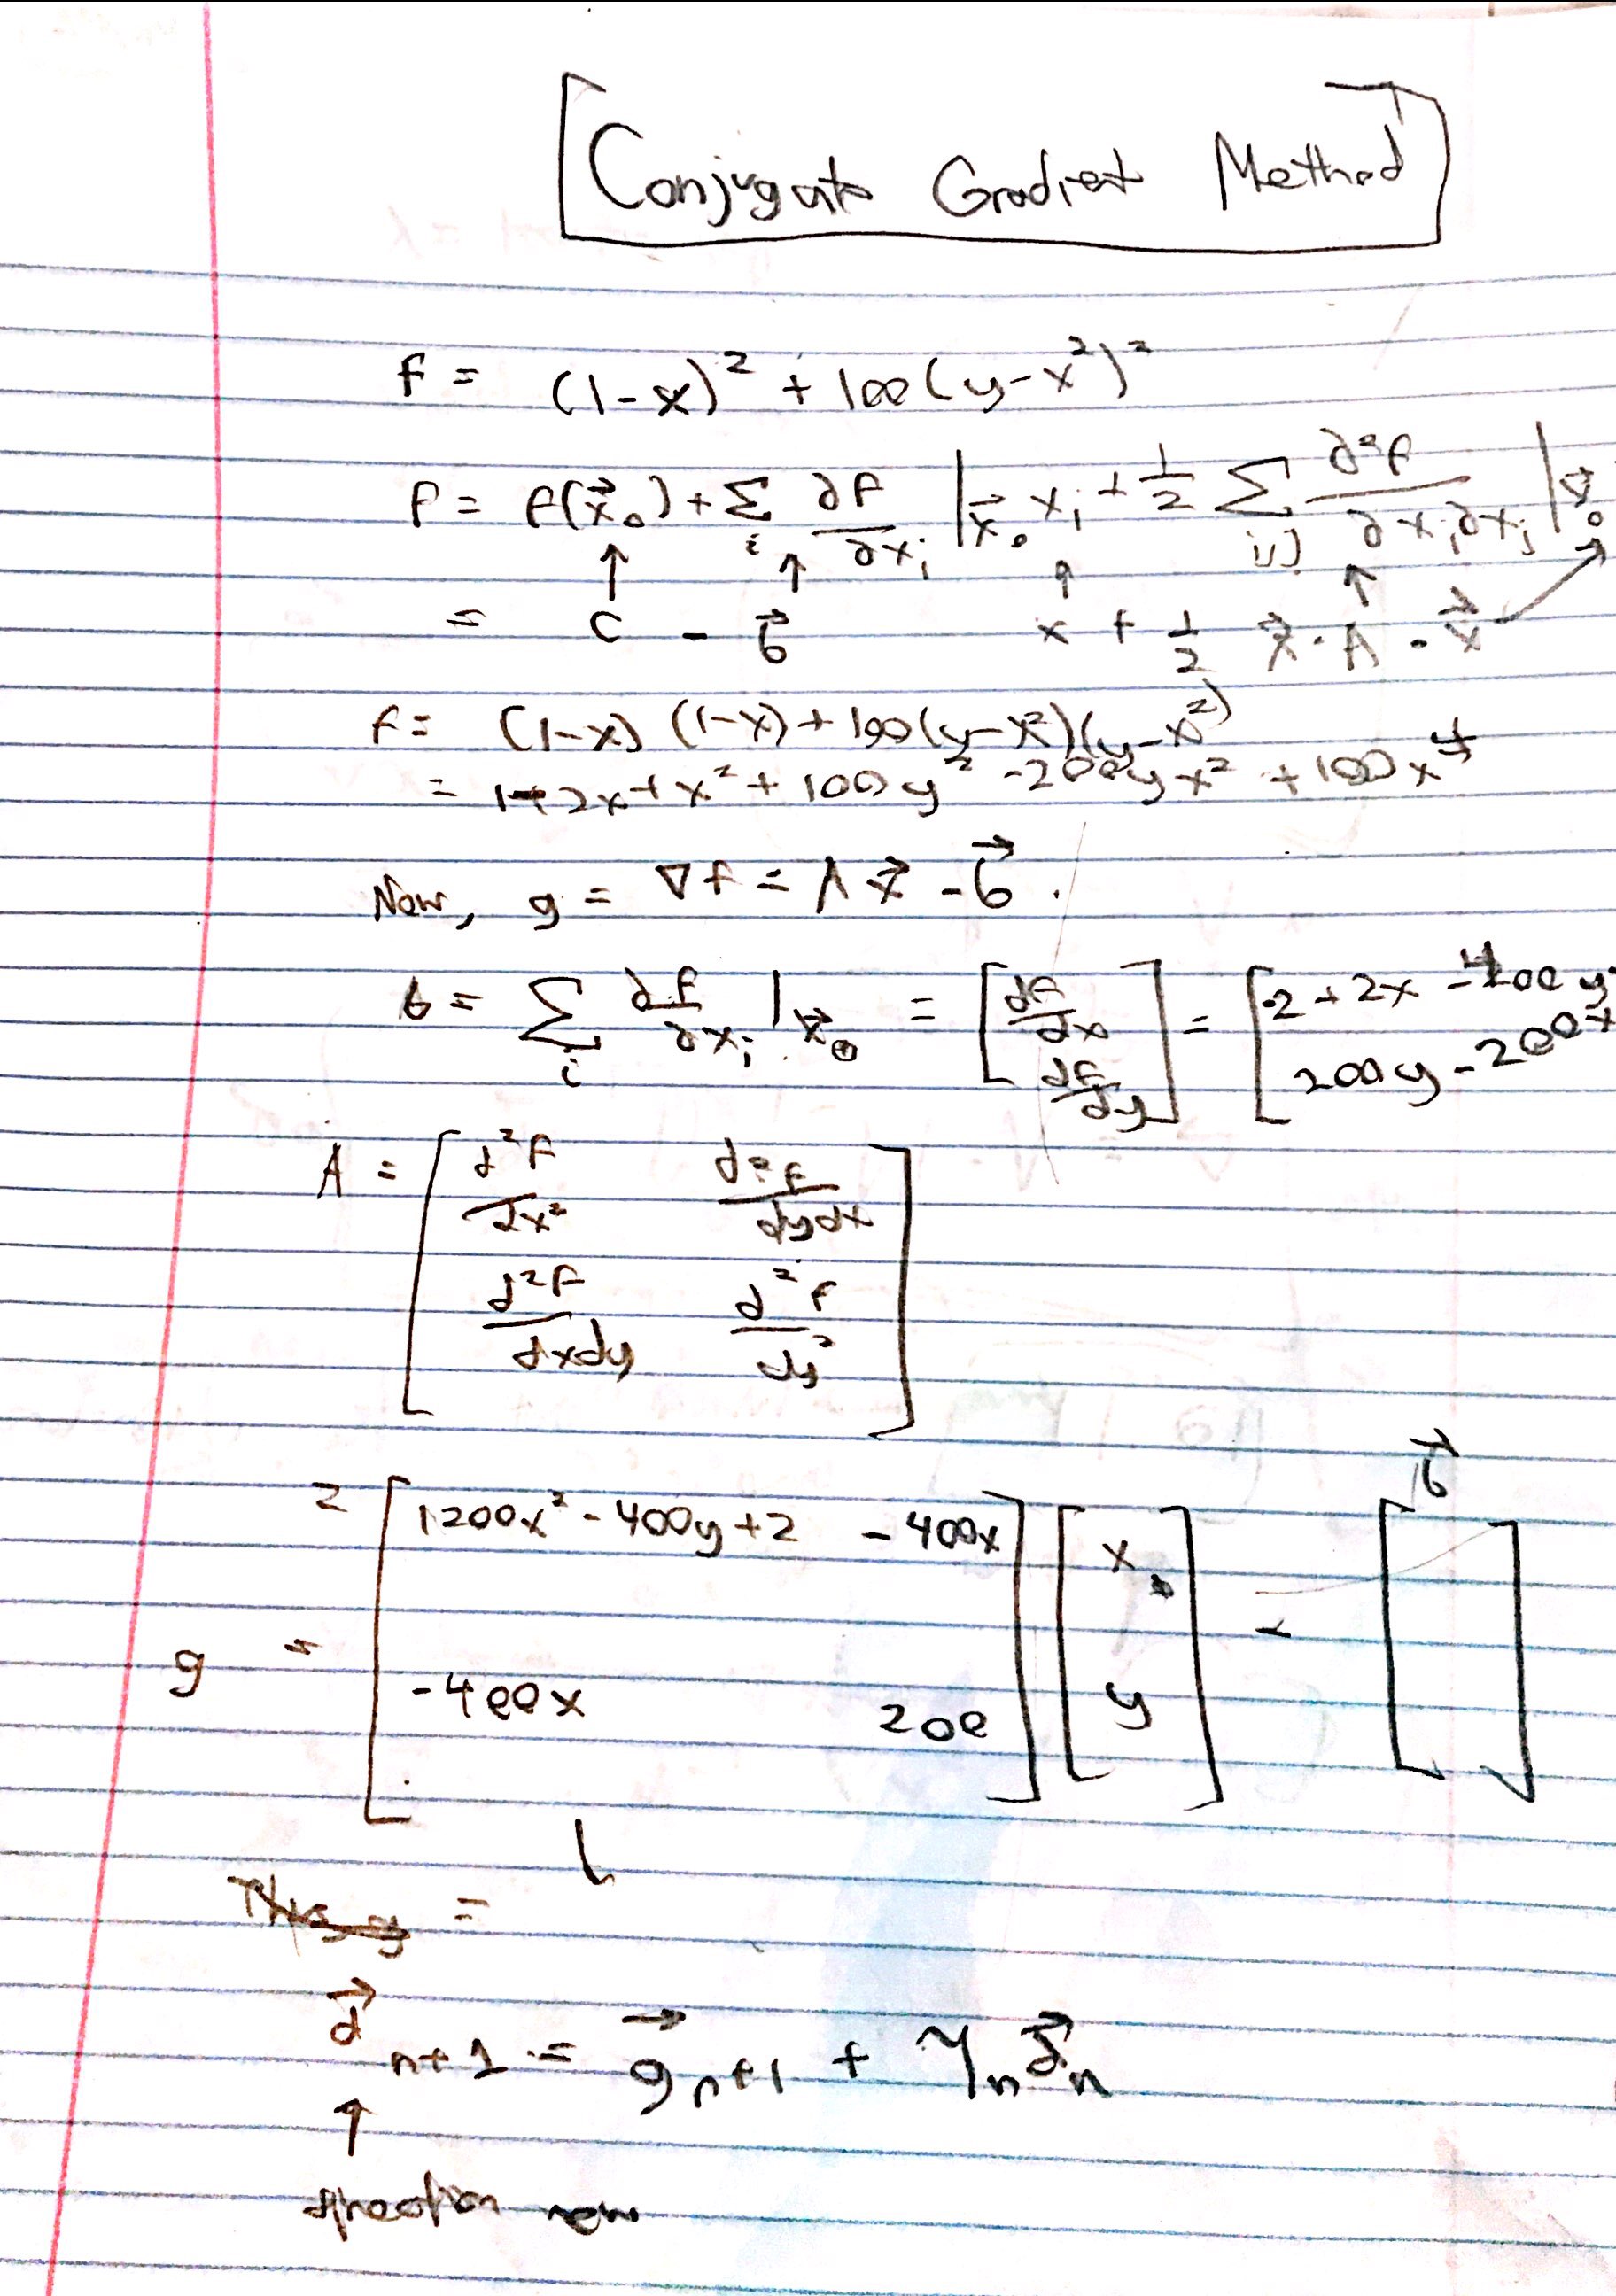 Conjugate Gradient Method
f = (1-x)² + 100(y-x²)²
f = f(x⃗₀) + Σᵢ ∂f/∂xᵢ |x⃗₀ xᵢ + 1/2 Σᵢ,ⱼ ∂²f/∂xᵢ∂xⱼ |
↑ ↑ ↑ ↑
= c - b⃗ x + 1/2 x⃗ · A · x⃗
f = (1-x)(1-x) + 100(y-x²)(y-x²)
= 1-2x+x² + 100y² - 200yx² + 100x⁴
Now, g = ∇f = Ax⃗ - b⃗.
b = Σᵢ ∂f/∂xᵢ |x⃗₀ = [df/dx df/dy] = [-2+2x-400y 200y-200x
A = [d²f/dx² d²f/dydx
d²f/dxdy d²f/dy²]
b⃗
= [1200x²-400y+2 -400x] [x
g = -400x 200] y] - [ ]
Thus g =
d⃗ₙ₊₁ = g⃗ₙ₊₁ + γₙd⃗ₙ
↑
direction new